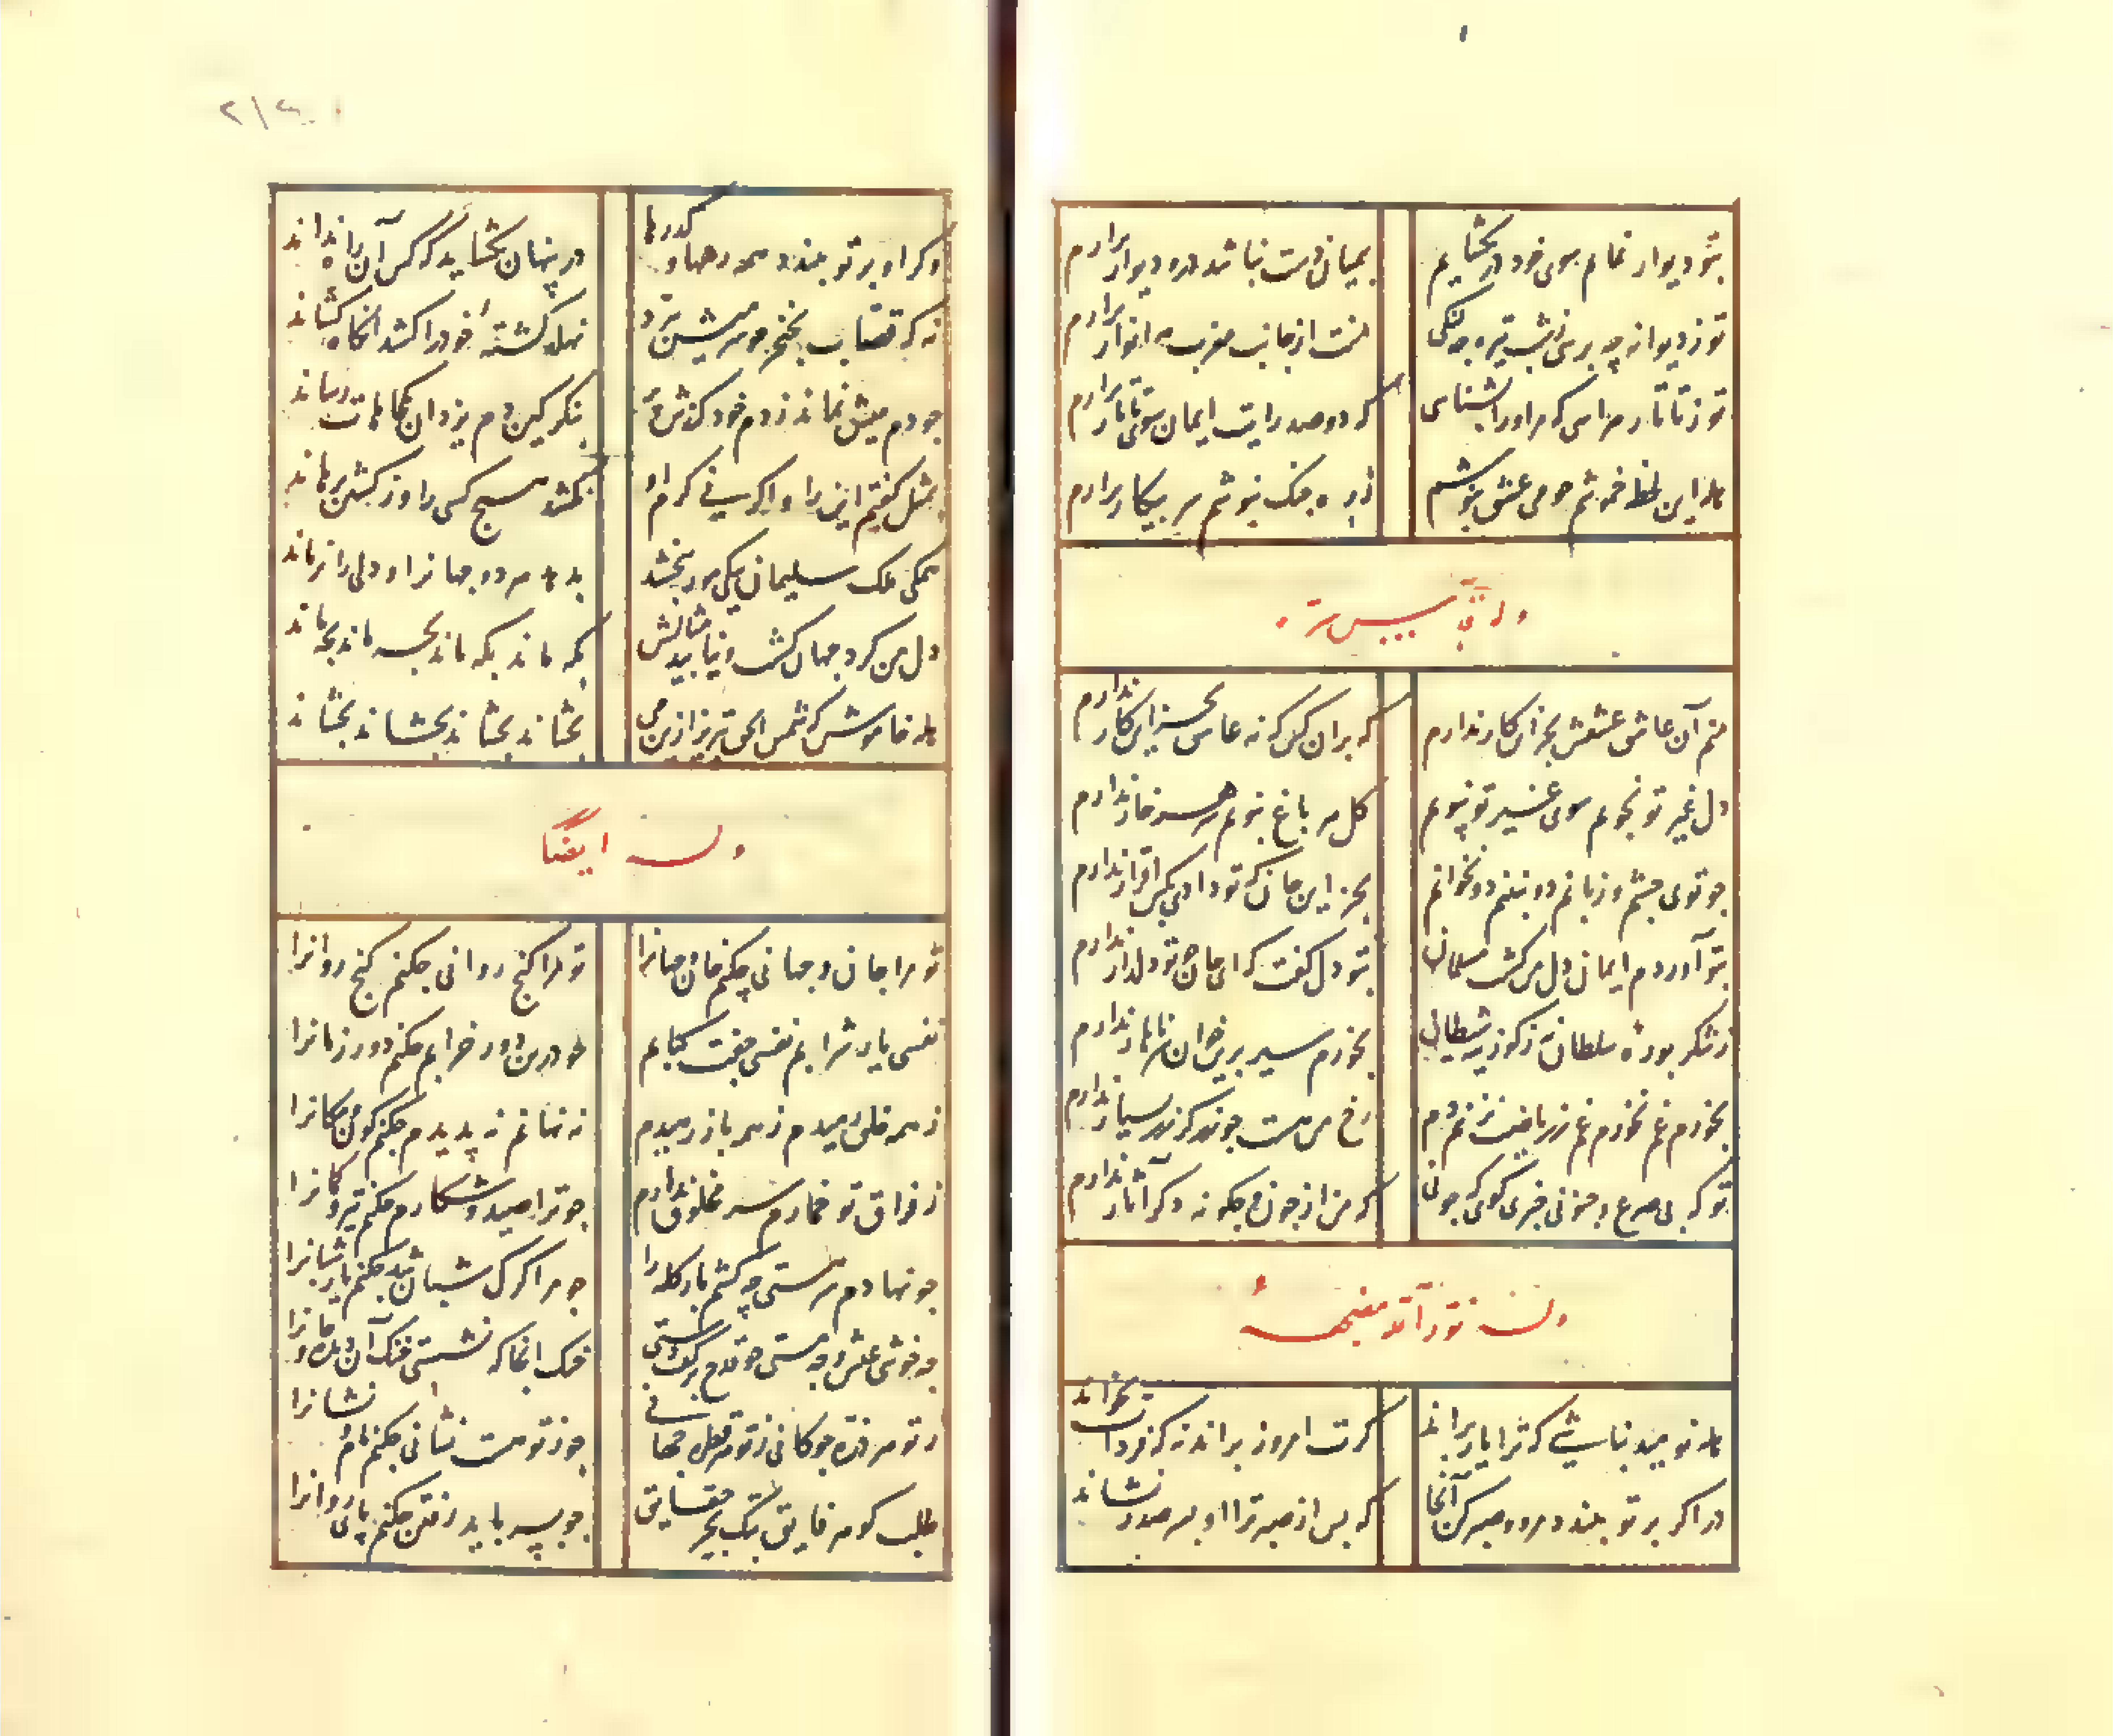 بتو دیوار نمایم سوی خود در بگشایم
بمیان دست نباشد در و دیوار برآرم
تو ز دیوانه چه برسی شب تیره چه لنگی
از جانب مغرب مه انوار برآرم
تو ز تاتار هراسی که مرا ورا بشناسی
که دو صد رایت ایمان سوی تاتار برآرم
هله این لحظه خموشم چو می عشق بنوشم
زره جنک بپوشم سر بیکار برآرم
وله
منم آن عاشق عشقش که بجز این کار ندارم
که بران کس که نه عاشق بجز انکار ندارم
دل غیر تو نجویم سوی غیر تو نپویم
کل هر باغ نبویم سر هر خار ندارم
جو توی جشم و زبانم دو نبینم دو نخوانم
بجز این جان که تو دادی بکس اقرار ندارم
بتو آوردم ایمان دل من کشت مسلمان
بتو دل کفت که ای جان جو تو دلدار ندارم
ز شکر بورهٔ سلطان نه ز
بخورم سیر برین خوان سر ناهار ندارم
بخورم غم نخورم غم ز ریاضت نزنم دم
رخ من هست جو زر کرند بسیار ندارم
تو که بی صرع و جنونی خبری کوی که جونی
که من از جون و جکونه دکر آثار ندارم
وله نور الله
هله نومید نباشی که ترا یار براند
کرت امروز براند نه که فردات بخواند
در اکر بر تو ببندد مرو و صبر کن آنجا
که بس از صبر ترا او بسر صدر نشاند
وکر او بر تو ببندد همه رهها و کذرها
در پنهان بکشاید که کس آن راه نداند
نه که قصاب بخنجر جو سر میش ببرد
نهلد کشتهٔ خود را کشد آنکاه کشاند
جو دم میش نماند ز دم خود کندش بر
بنکر کین دم یزدان بکجاهات رساند
بمثل کفتم این را و اکرنی کرم او
نکشد هیچ کسی را وز کشتن برهاند
همکی ملک سلیمان بیکی مور ببخشد
بدهد هر دو جهان را و دلی را نرماند
دل من کرد جهان کشت و نیابید مثالش
بکه ماند بکه ماند بکه ماند بکه ماند
هله خاموش که شمس الحق تبریز ازین می
بجشاند بجشاند بجشاند بجشاند
وله ایضا
تو مرا جان و جهانی جکنم جان و جهان را
تو مرا کنج روانی جکنم کنج روان را
نفسی یار شرابم نفسی جفت کبابم
جو درین دور خرابم جکنم دور زمان را
ز همه خلق رمیدم ز همه باز رمیدم
نه نهانم نه پدیدم جکنم کون و مکان را
ز فراق تو خمارم سر مخلوق ندارم
جو ترا صید و شکارم جکنم تیر و کمان را
جو نهادم سر مستی چه کشم بار کله را
جو مرا کرک شبان شد جکنم بار شبان را
چه خوشی عشق و چه مستی جو قدح بر کف دستی
خنک آنجا که نشستی خنک آن دیدهٔ جان را
ز تو هر ذره جو کانی ز تو هر قطره جهانی
جو ز تو هست نشانی جکنم نام و نشان را
طلب کوهر فایق بتک بحر حقایق
جو بسر باید رفتن جکنم پای روان را